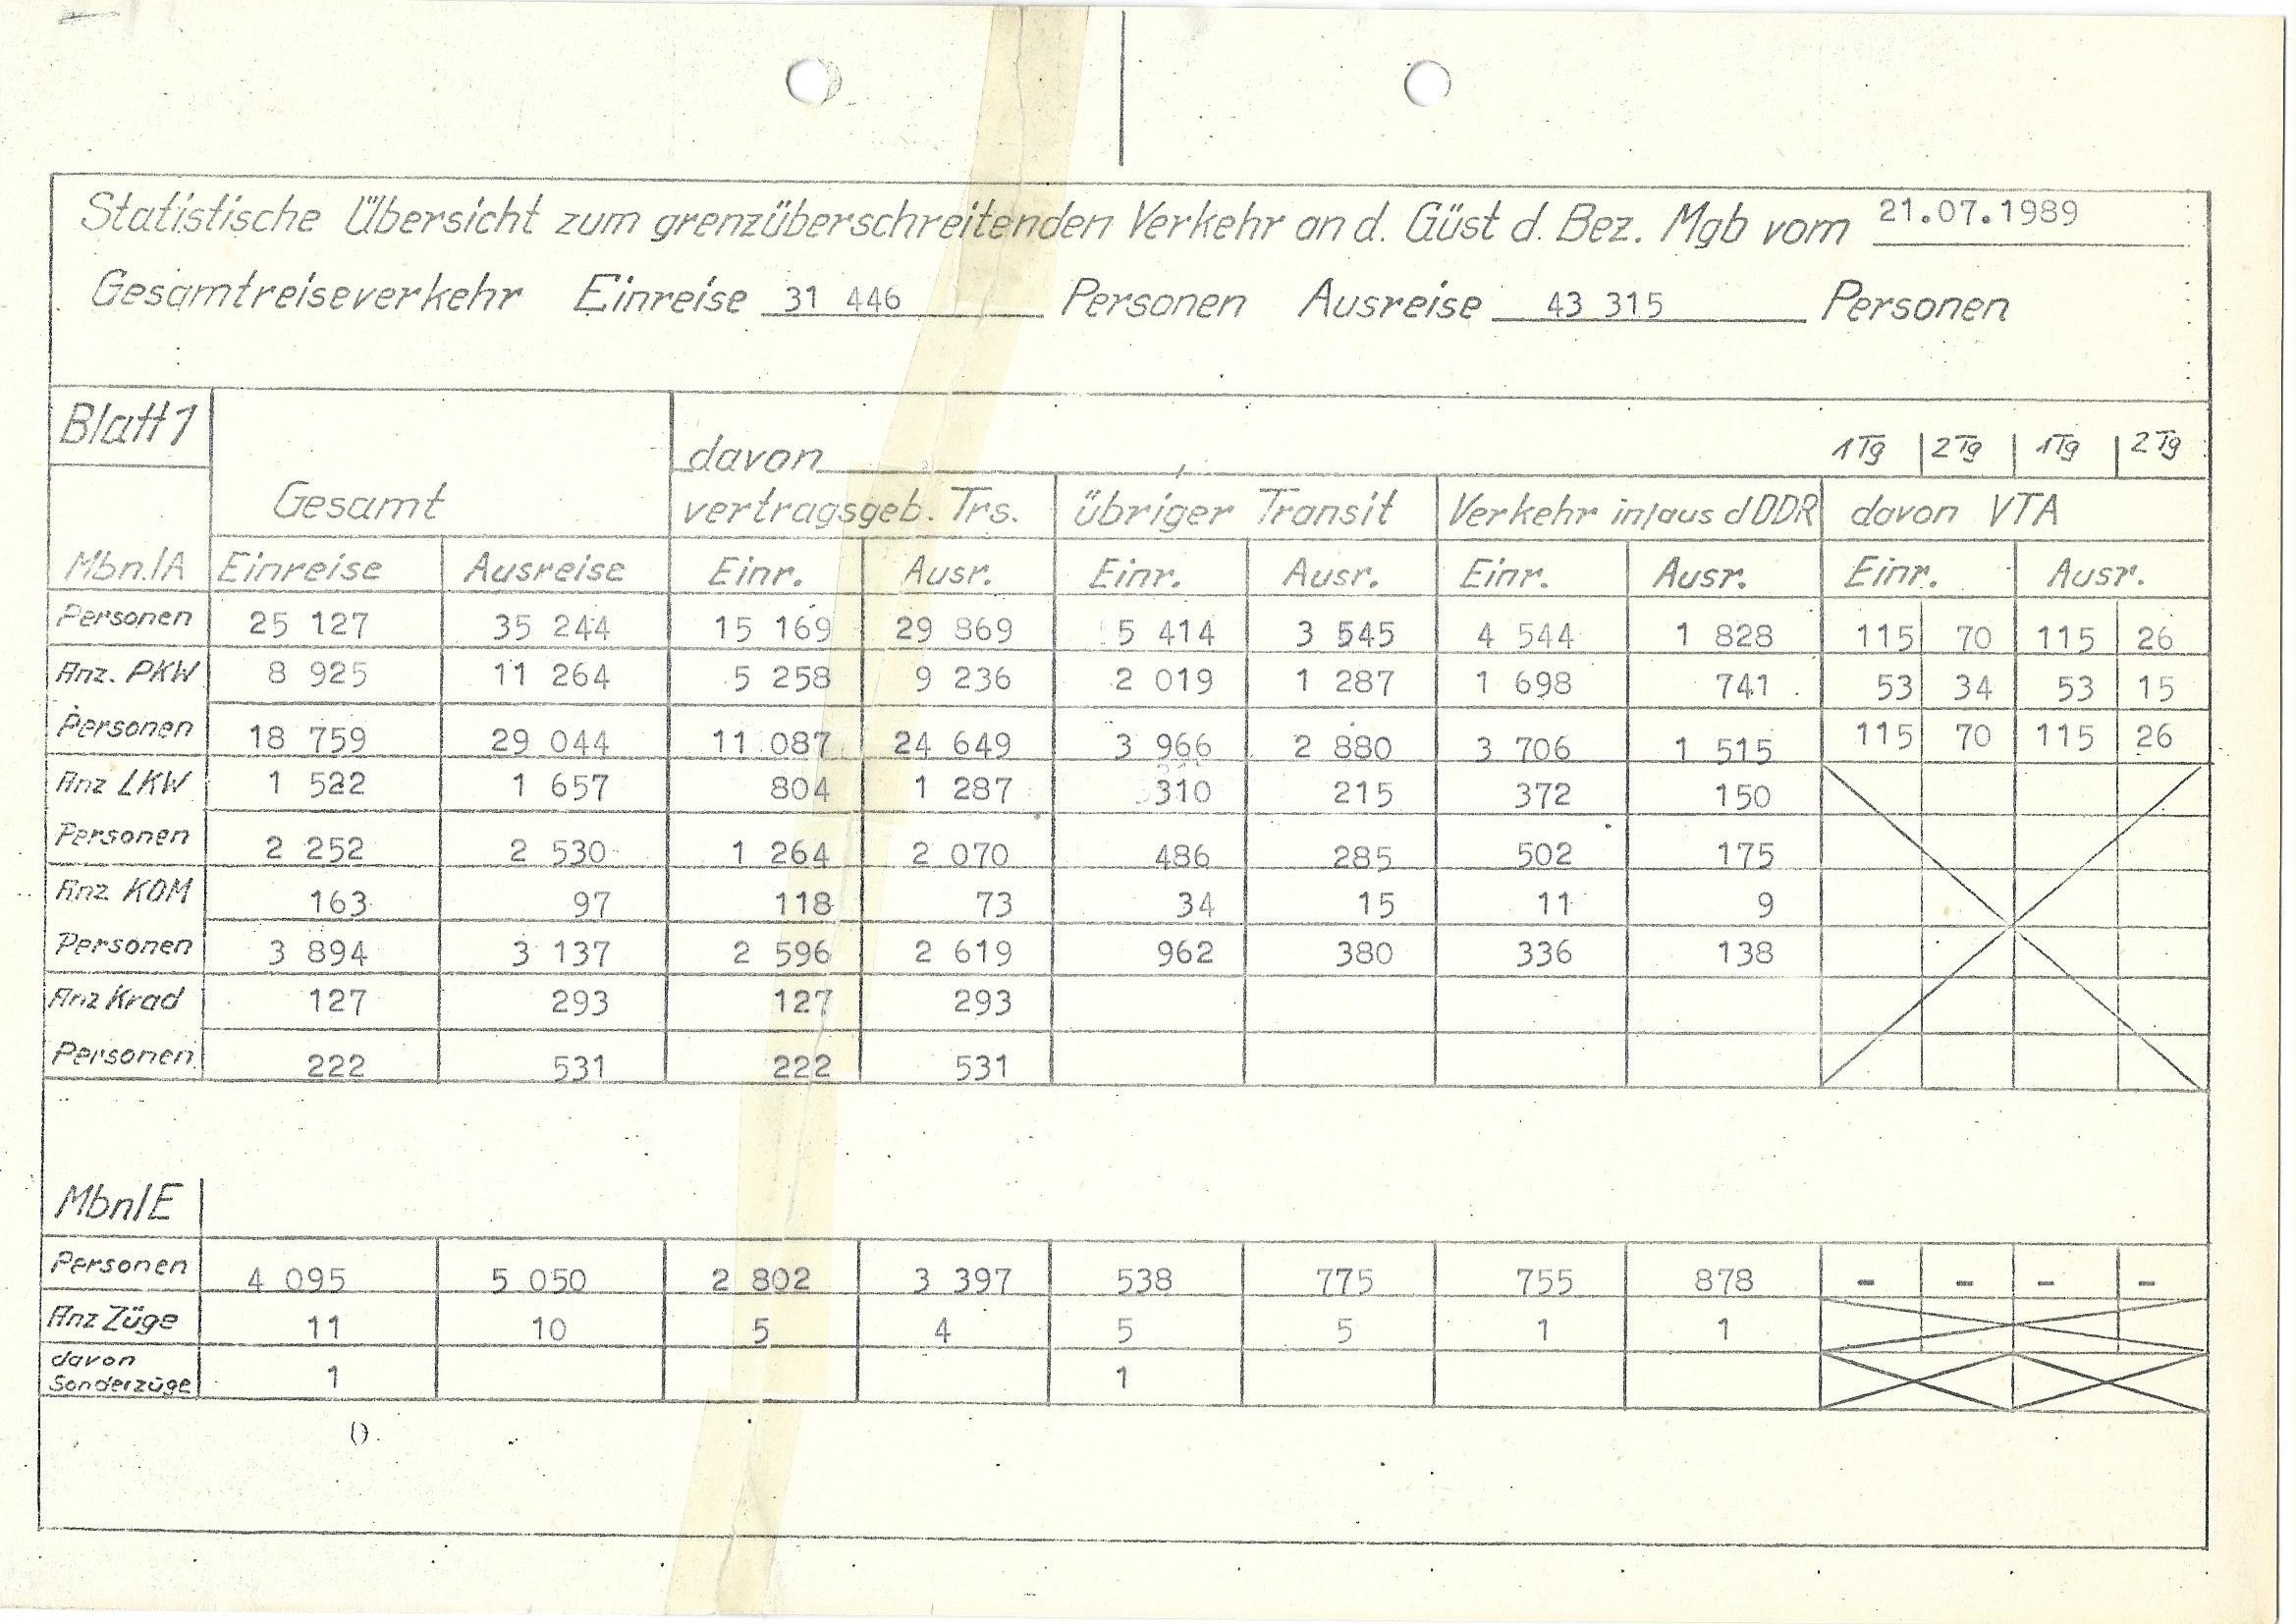 Statistische Übersicht zum grenzüberschreitenden Verkehr an d. Güst d. Bez. Mgb vom 21.07.1989
Gesamtreiseverkehr Einreise 31 446 Personen Ausreise 43 315 Personen
Blatt 1
davon 1Tg 2Tg 1Tg 2Tg
Gesamt vertragsgeb. Trs. übriger Transit Verkehr in/aus d DDR davon VTA
Mbn.IA Einreise Ausreise Einr. Ausr. Einr. Ausr. Einr. Ausr. Einr. Ausr.
Personen 25 127 35 244 15 169 29 869 5 414 3 545 4 544 1 828 115 70 115 26
Anz. PKW 8 925 11 264 5 258 9 236 2 019 1 287 1 698 741 53 34 53 15
Personen 18 759 29 044 11 087 24 649 3 966 2 880 3 706 1 515 115 70 115 26
Anz LKW 1 522 1 657 804 1 287 310 215 372 150
Personen 2 252 2 530 1 264 2 070 486 285 502 175
Anz KOM 163 97 118 73 34 15 11 9
Personen 3 894 3 137 2 596 2 619 962 380 336 138
Anz Krad 127 293 127 293
Personen 222 531 222 531
MbnIE
Personen 4 095 5 050 2 802 3 397 538 775 755 878 - - - -
Anz Züge 11 10 5 4 5 5 1 1
davon
Sonderzüge 1 1